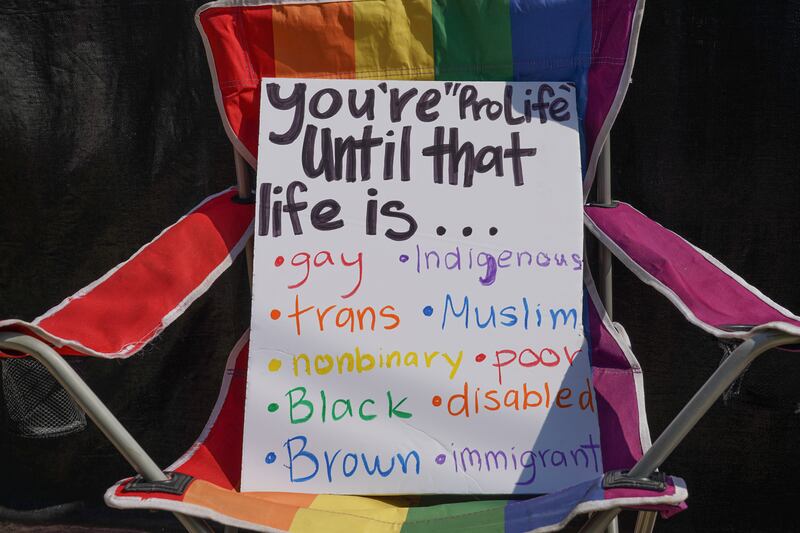 You're "ProLife"
Until that
life is ...
• gay • Indigenous
• trans • Muslim
• nonbinary • poor
• Black • disabled
• Brown • immigrant